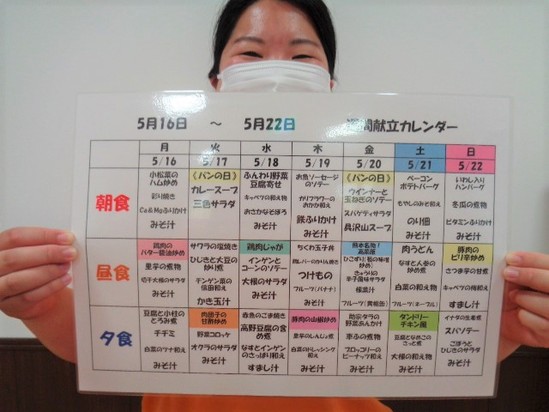 5月16日 ～ 5月22日 週間献立カレンダー
月 火 水 木 金 土 日
5/16 5/17 5/18 5/19 5/20 5/21 5/22
朝食
小松菜の
ハム炒め
彩り焼き
Ca&Mgふりかけ
みそ汁
《パンの日》
カレースープ
三色サラダ
ふんわり野菜
豆腐寄せ
キャベツの和え物
おさかなそぼろ
みそ汁
お魚ソーセージ
のソテー
カリフラワーの
おかか和え
鉄ふりかけ
みそ汁
《パンの日》
ウインナーと
玉ねぎのソテー
スパゲティサラダ
具沢山スープ
ベーコン
ポテトバーグ
もやしのみそ和え
のり佃
みそ汁
いわし入り
ハンバーグ
冬瓜の煮物
ビタミンふりかけ
みそ汁
昼食
鶏肉の
バター醤油炒め
里芋の煮物
切干大根のサラダ
みそ汁
サワラの塩焼き
ひじきと大豆の
炒り煮
インゲンの
信田和え
かき玉汁
鶏肉じゃが
インゲンと
コーンのソテー
大根のサラダ
みそ汁
ちくわ玉子丼
つけもの
みそ汁
フルーツ(バナナ)
熊本名物!
高菜飯
きゅうりの
辛子風味サラダ
フルーツ(黄桃缶)
肉うどん
なすとん巻の
炒め煮
白菜の和え物
豚肉の
ピリ辛炒め
さつま芋の甘煮
キャベツの梅和え
すまし汁
夕食
豆腐と小柱の
とろみ煮
チヂミ
白菜のツナ和え
みそ汁
肉団子の
甘酢炒め
野菜コロッケ
オクラのサラダ
みそ汁
赤魚のごま焼き
高野豆腐の含
め煮
なすとインゲン
のさっぱり和え
すまし汁
豚肉の山椒炒め
里芋のしんじょ煮
白菜のドレッシング
和え
みそ汁
助宗タラの
野菜あんかけ
茶ふの煮物
ブロッコリーの
ピーナッツ和え
みそ汁
タンドリー
チキン風
豆腐となめこの
さっと煮
大根の和え物
みそ汁
イナダの生姜煮
スパソテー
ごぼうと
ひじきのサラダ
みそ汁